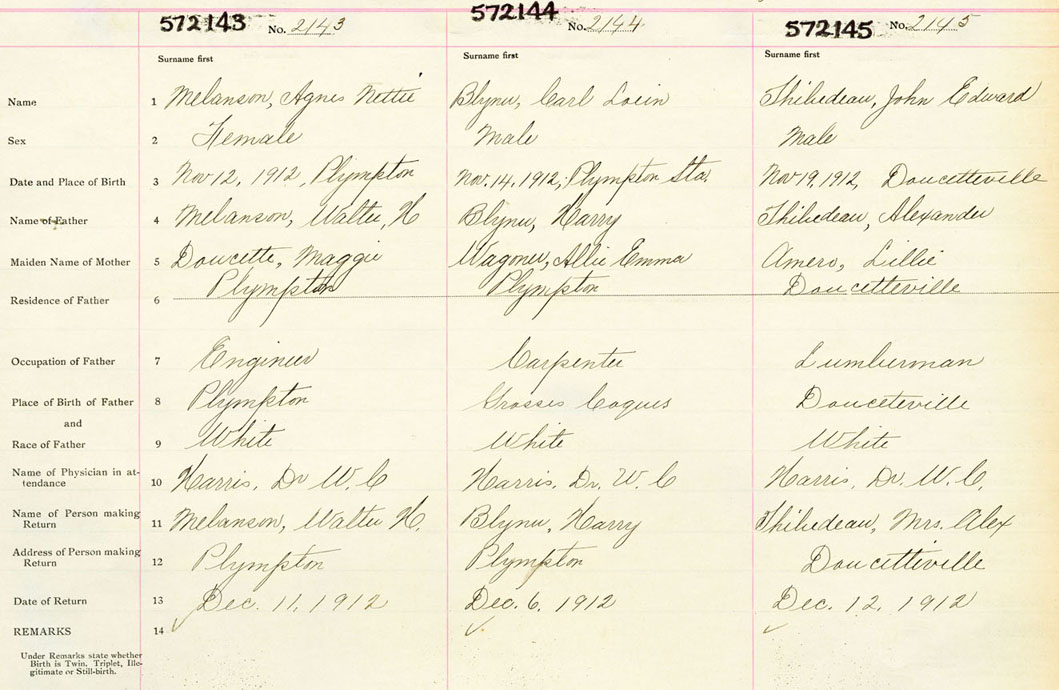 572143 No. 2143 572144 No. 2144 572145 No. 2145
Surname first Surname first Surname first
Name 1 Melanson, Agnes Nettie Blynn, Carl Thibedeau, John Edward
Sex 2 Female Male Male
Date and Place of Birth 3 Nov 12, 1912, Plympton Nov. 14, 1912, Plympton Sta. Nov 19, 1912, Doucetteville
Name of Father 4 Melanson, Walter, H Blynn, Harry Thibedeau, Alexander
Maiden Name of Mother 5 Doucette, Maggie Wagoner, Allie Emma Amero, Lillie
Residence of Father 6 Plympton Plympton Doucetteville
Occupation of Father 7 Engineer Carpenter Lumberman
Place of Birth of Father 8 Plympton Grosses Coques Douceteville
and
Race of Father 9 White White White
Name of Physician in at-
tendance 10 Harris, Dr W. C Harris, Dr. W. C Harris, Dr. W. C.
Name of Person making
Return 11 Melanson, Walter H. Blynn, Harry Thibedeau, Mrs. Alex
Address of Person making
Return 12 Plympton Plympton Doucetteville
Date of Return 13 Dec. 11, 1912 Dec. 6, 1912 Dec. 12, 1912
REMARKS 14
Under Remarks state whether
Birth is Twin. Triplet, Ille-
gitimate or Still-birth.